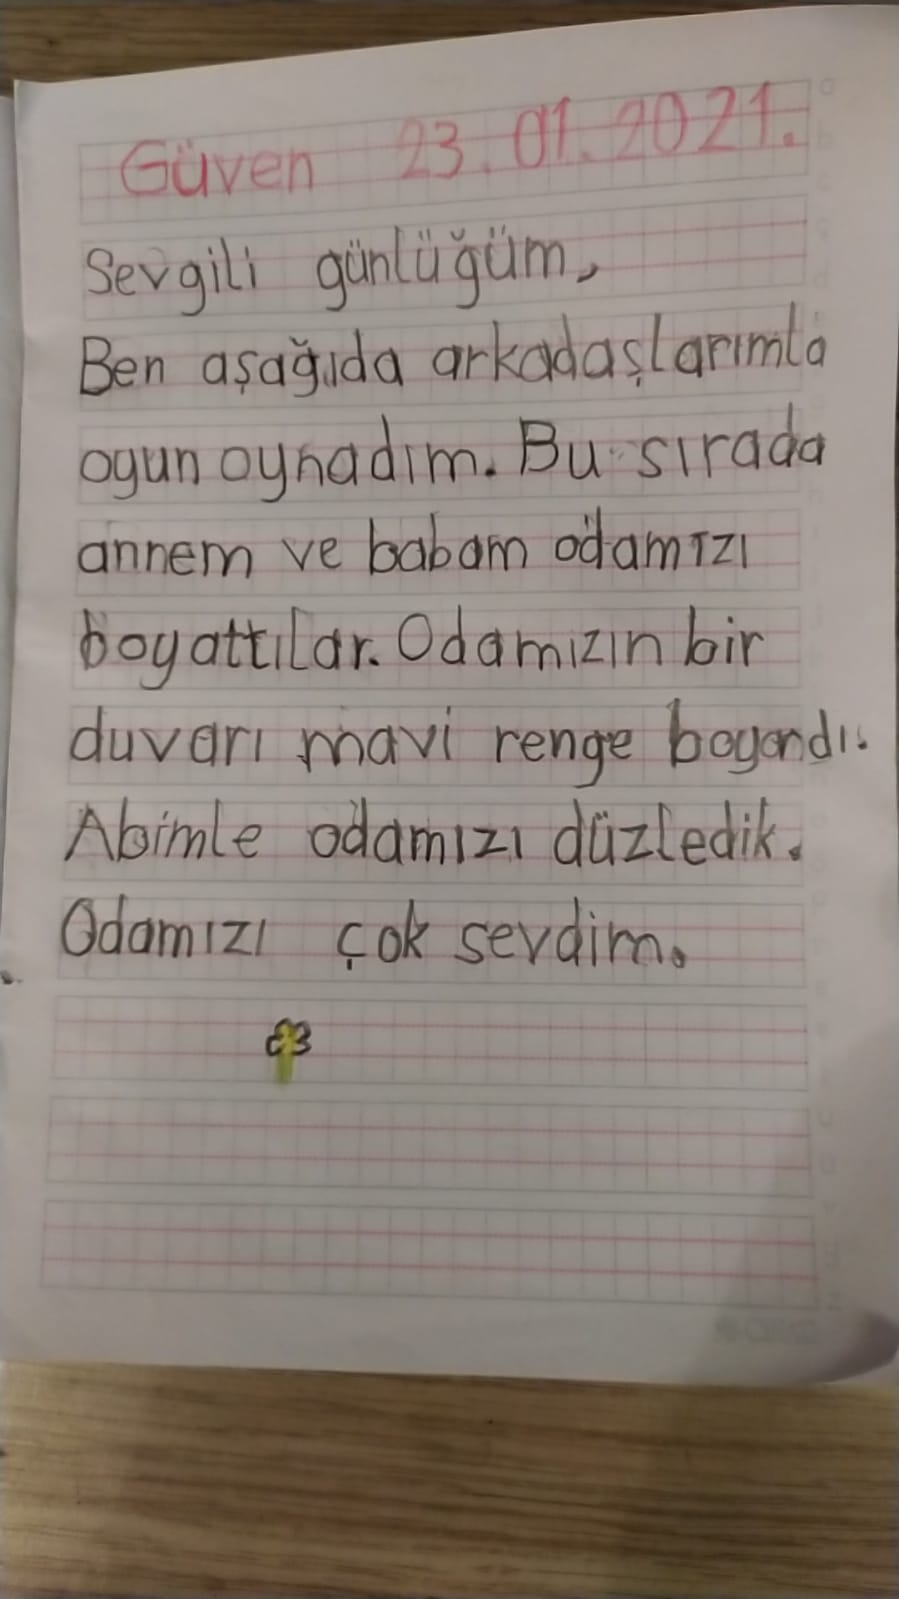 Güven 23.01.2021.
Sevgili günlüğüm,
Ben aşağıda arkadaşlarımla
oyun oynadım. Bu sırada
annem ve babam odamızı
boyattılar. Odamızın bir
duvarı mavi renge boyandı.
Abimle odamızı düzledik.
Odamızı çok sevdim.